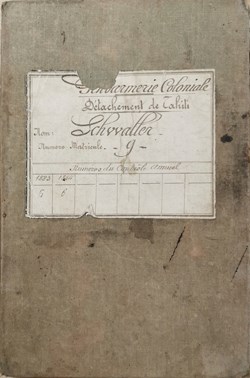 Gendarmerie Coloniale
Détachement de Tahiti
Nom: Schvaller
Numéro Matricule. - 9 -
Numéros du Contrôle Annuel
5 6